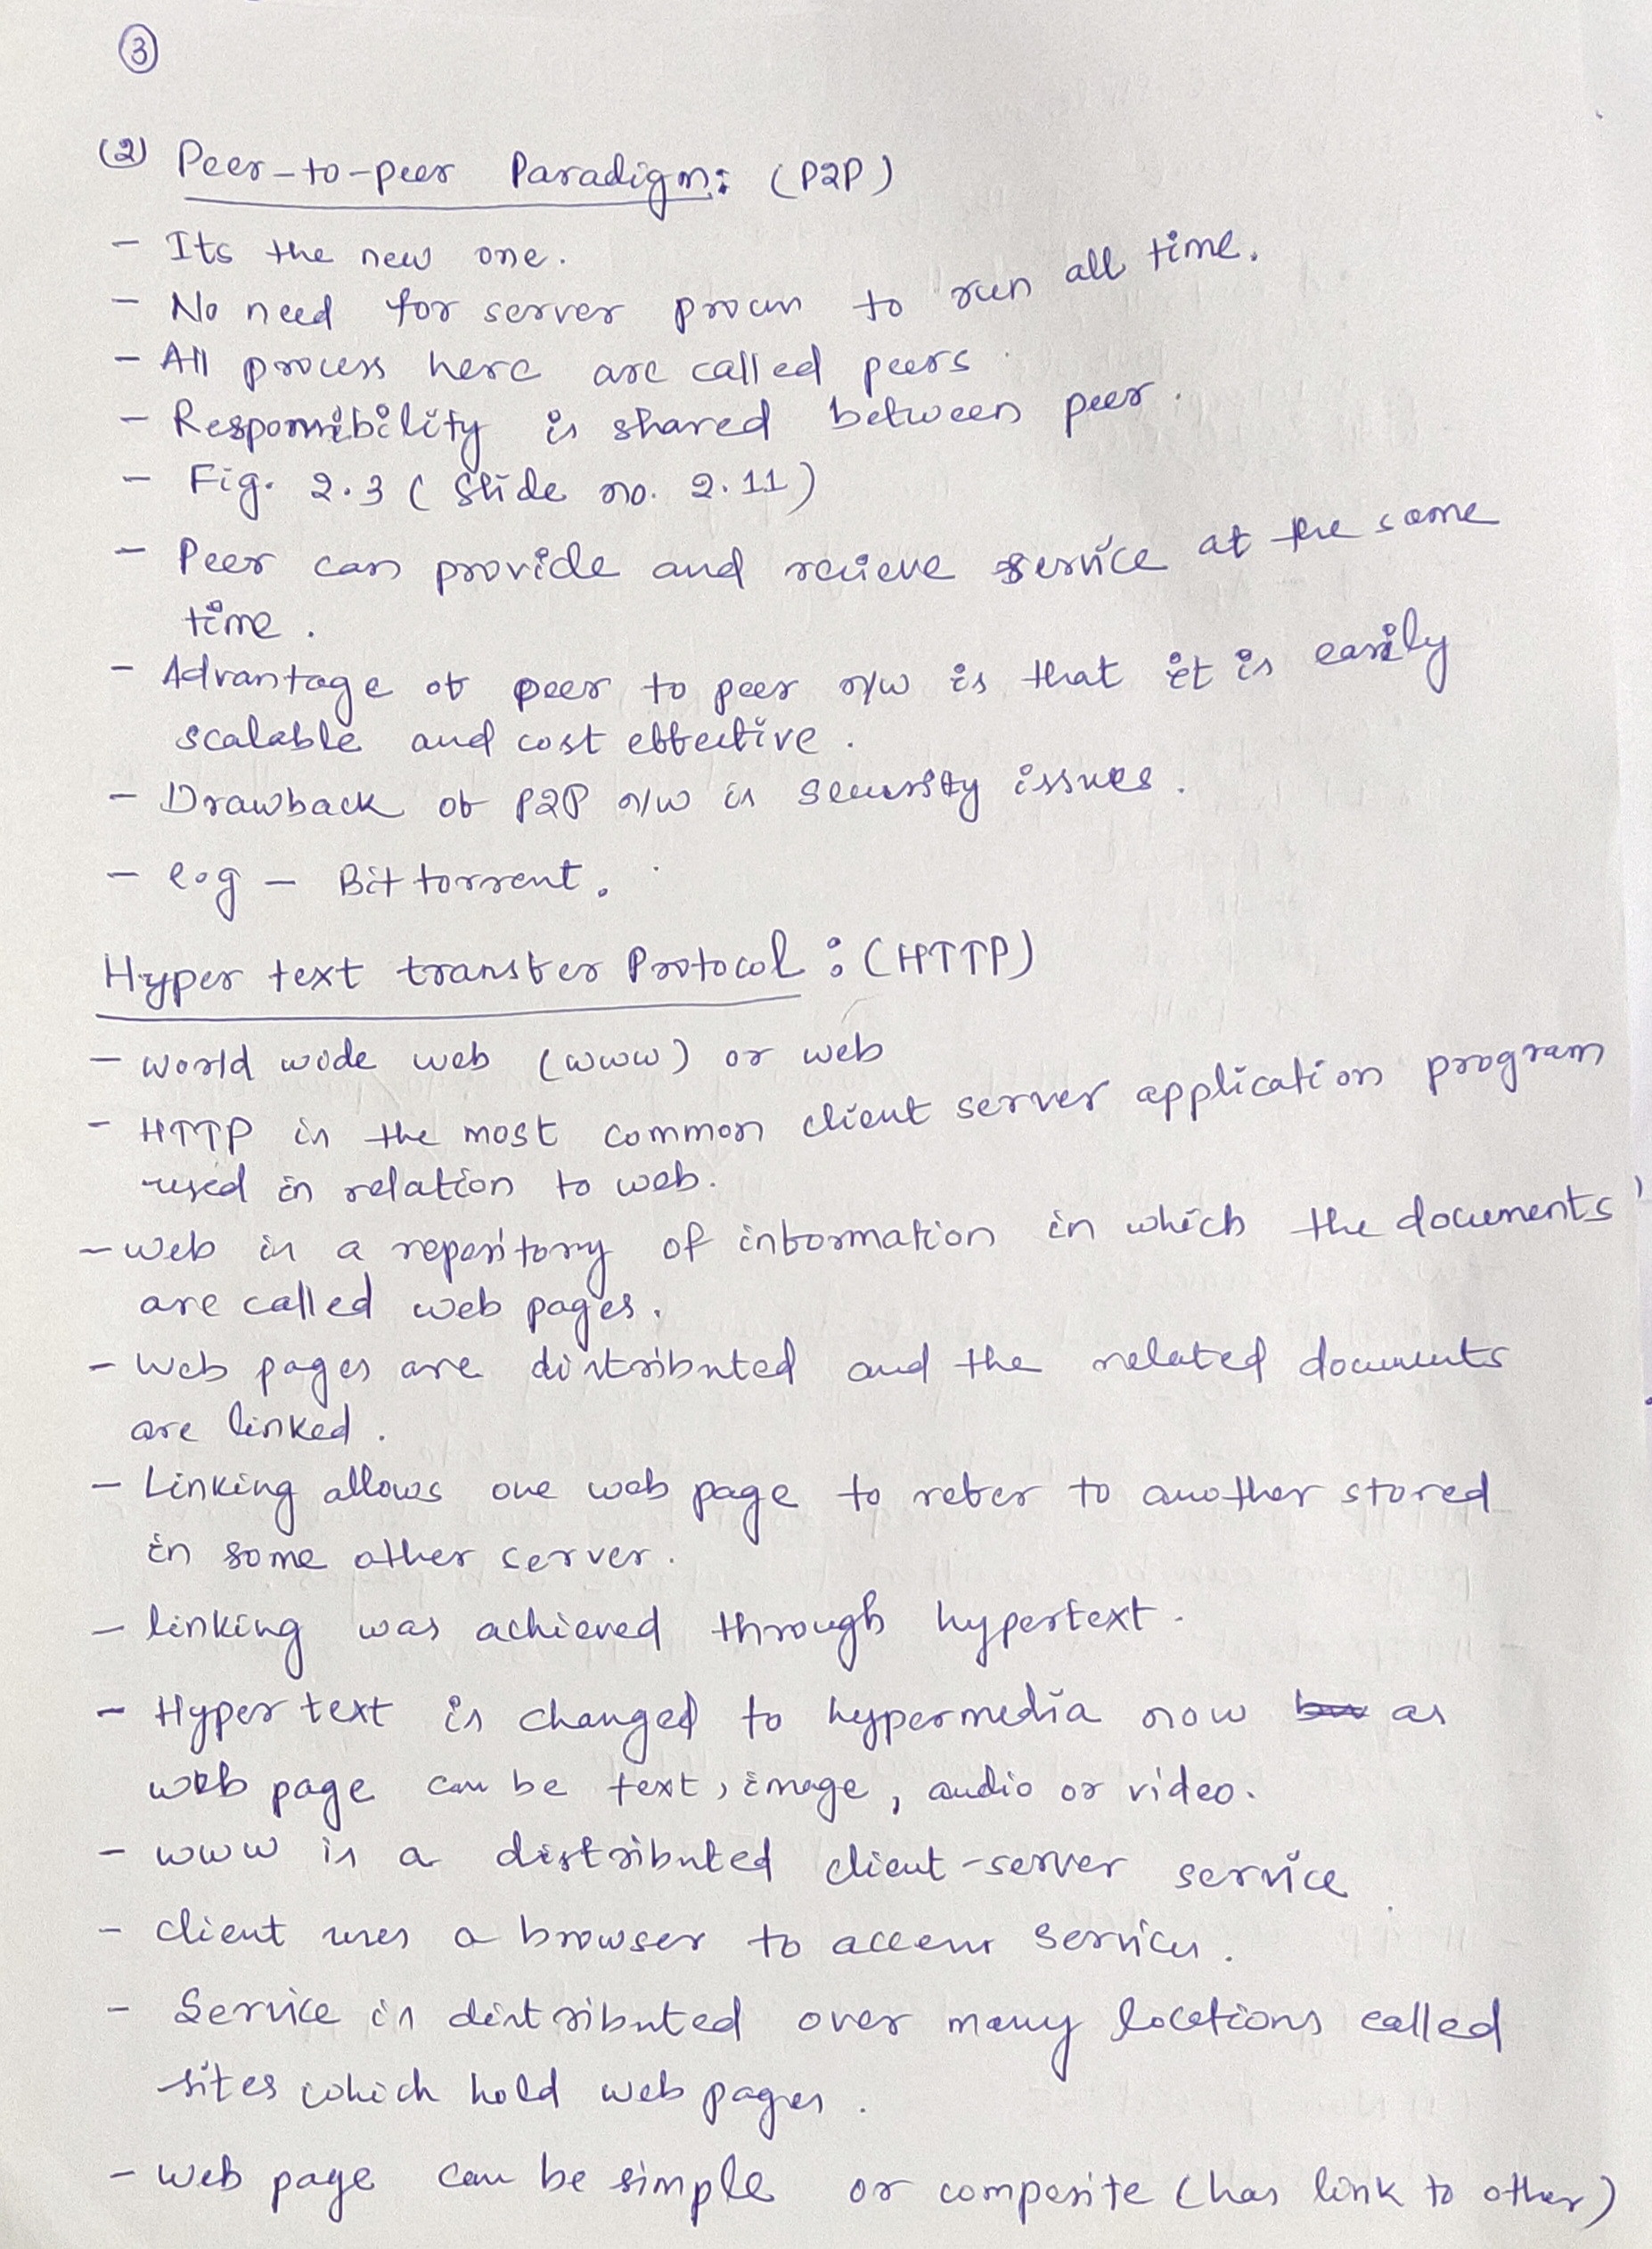 3
(2) Peer-to-peer Paradigm: (P2P)
- Its the new one.
- No need for server process to run all time.
- All process here are called peers
- Responsibility is shared between peer.
- Fig. 2.3 (Slide no. 2.11)
- Peer can provide and recieve service at the same
time.
- Advantage of peer to peer n/w is that it is easily
scalable and cost effective.
- Drawback of P2P n/w is security issues.
- e.g - Bittorrent.
Hyper text transfer Protocol : (HTTP)
- World wide web (www) or web
- HTTP is the most common client server application program
used in relation to web.
- Web is a repository of information in which the documents
are called web pages.
- Web pages are distributed and the related documents
are linked.
- Linking allows one web page to refer to another stored
in some other server.
- linking was achieved through hypertext.
- Hyper text is changed to hypermedia now as
web page can be text, image, audio or video.
- www is a distributed client-server service
- Client uses a browser to access services.
- Service is distributed over many locations called
sites which hold web pages.
- Web page can be simple or composite (has link to other)